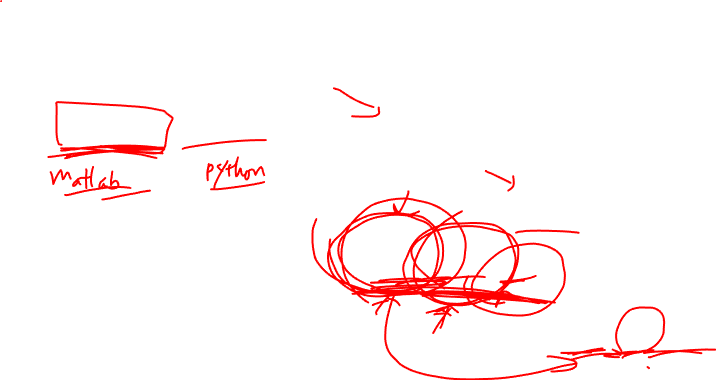 matlab
python